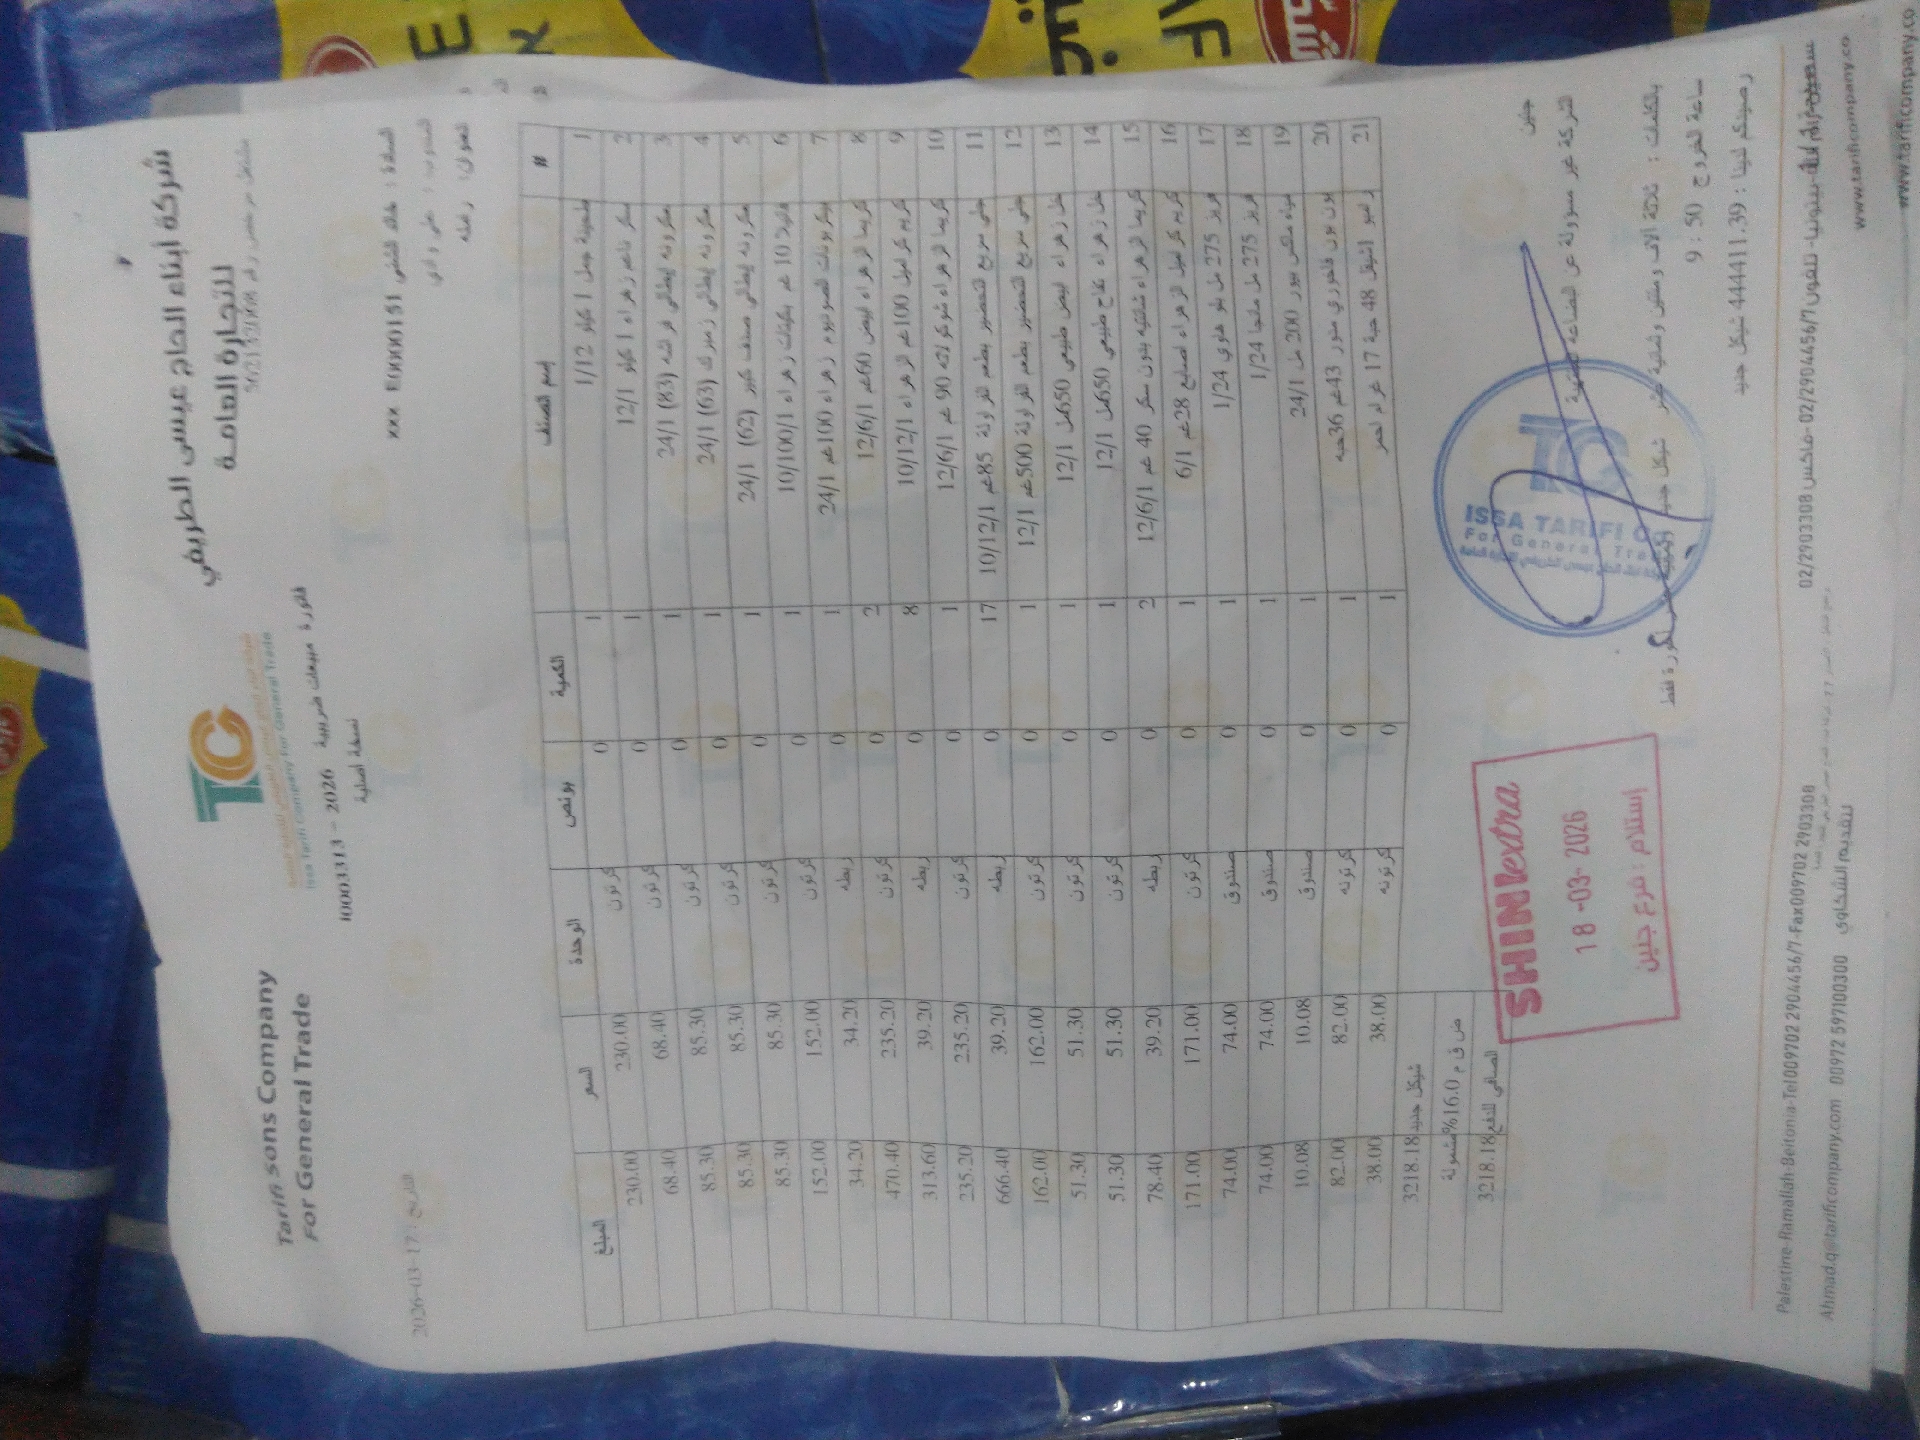 شركة ابناء الحاج عيسى الطريفي
للتجارة العامة
Tarifi sons Company
For General Trade
TC
Issa Tarifi Company For General Trade
فاتورة مبيعات ضريبية 2026 - 10003313
نسخة أصلية
السادة :
xxx E00000151
التاريخ : 17-03-2026
العنوان: رام الله
# إسم الصنف الكمية بونص الوحدة السعر المبلغ
1 طحينة جمل 1 كيلو 1/12 1 0 كرتون 230.00 230.00
2 سكر ناعم زهراء 1 كيلو 12/1 1 0 كرتون 68.40 68.40
3 معكرونه إيطالي فراشه (83) 24/1 1 0 كرتون 85.30 85.30
4 معكرونه إيطالي زمبرك (63) 24/1 1 0 كرتون 85.30 85.30
5 معكرونه إيطالي صدف كبير (62) 24/1 1 0 كرتون 85.30 85.30
6 فانيلا 10 غم بكيتات زهراء 10/100/1 1 0 كرتون 152.00 152.00
7 بيكربونات الصوديوم زهراء 100غم 24/1 1 0 ربطه 34.20 34.20
8 كريما الزهراء ابيض 60غم 12/6/1 2 0 كرتون 235.20 470.40
9 كريم كراميل 100غم الزهراء 10/12/1 8 0 ربطه 39.20 313.60
10 كريما الزهراء شوكولاته 90 غم 12/6/1 1 0 كرتون 235.20 235.20
11 جلي سريع التحضير بطعم الفراولة 85غم 10/12/1 17 0 ربطه 39.20 666.40
12 جلي سريع التحضير بطعم الفراولة 500غم 12/1 1 0 كرتون 162.00 162.00
13 خل زهراء ابيض طبيعي 650مل 12/1 1 0 كرتون 51.30 51.30
14 خل زهراء تفاح طبيعي 650مل 12/1 1 0 كرتون 51.30 51.30
15 كريما الزهراء شانتيه بدون سكر 40 غم 12/6/1 2 0 ربطه 39.20 78.40
16 كريم كراميل الزهراء اصابع 28غم 6/1 1 0 كرتون 171.00 171.00
17 فريز 275 مل بلو هاواي 1/24 1 0 صندوق 74.00 74.00
18 فريز 275 مل مانجا 1/24 1 0 صندوق 74.00 74.00
19 مياه مكس بيور 200 مل 24/1 1 0 صندوق 10.08 10.08
20 بون بون فاخوري مدور 43غم 36حبه 1 0 كرتونه 82.00 82.00
21 48 حبة 17 غرام احمر 1 0 كرتونه 38.00 38.00
شيكل جديد 3218.18
ض ق م 16.0% مشمولة
الصافي للدفع 3218.18
جنين
الشركة غير مسؤولة عن البضاعة
بالكلمات : ثلاثة آلاف ومئتين وثمانية عشر شيكل جديد
ساعة الخروج 9:50
رصيدكم لدينا : 44411.39 شيكل جديد
ISSA TARIFI CO
For General Trade
SHINI extra
18-03-2026
إستلام : فرع جنين
Palestine-Ramallah-Beitonia-Tel 009702 2904456/7-Fax 009702 290308
02/2903308 فاكس-02/2904456/7
Ahmad.q@tarificompany.com 00972 597100300 لتقديم الشكاوي
www.tarificompany.co
www.tarificompany.co